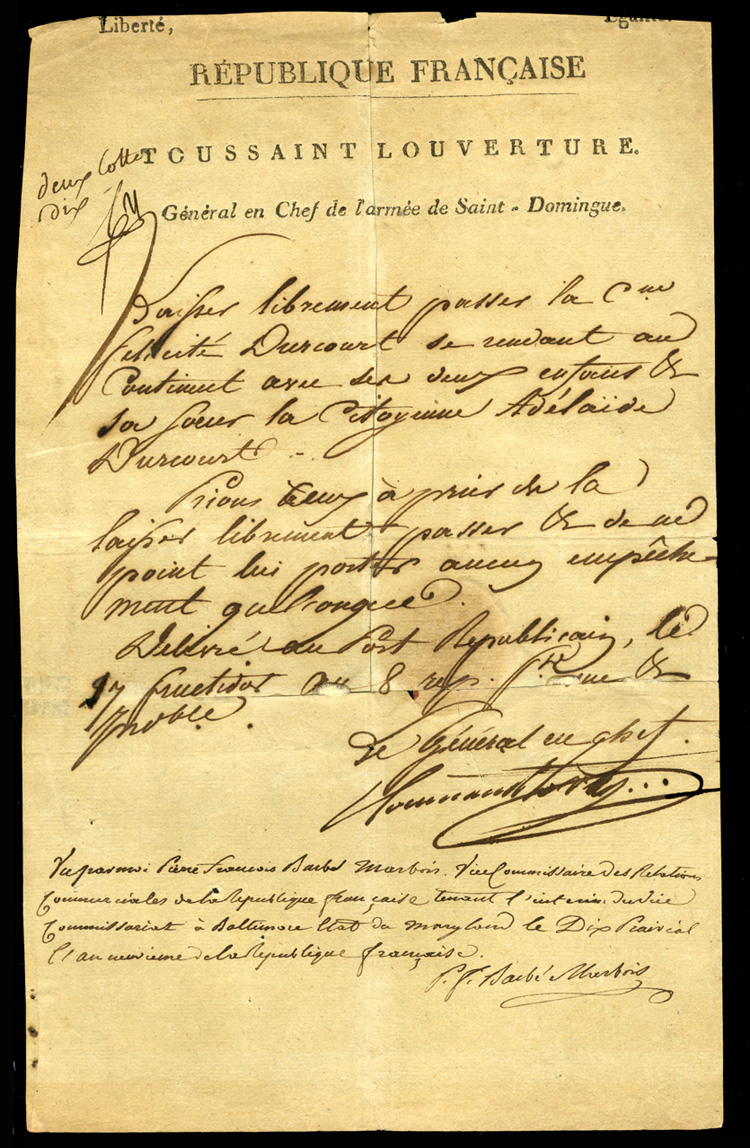 Liberté, Égalité.
RÉPUBLIQUE FRANÇAISE
TOUSSAINT LOUVERTURE.
deux Cotte
dix
Général en Chef de l'armée de Saint-Domingue.
Laisser librement passer la C.ne
felicité Durcourt se rendant au
Continent avec ses deux enfans &
sa soeur la Citoyenne Adélaïde
Durcourt
Prions ceux à prier de la
laisser librement passer & de ne
point lui porter aucun empêche-
ment quelconque.
Délivré au Port Republicain, le
17 fructidor an 8 rep. f.se une &
Le Général en chef.
Toussaint Louverture
Vu par moi Pierre François Barbé Marbois. Vice Commissaire des Relations
Commerciales de la Republique française tenant l'interim du vice
Commissariat à Baltimore Etat du Maryland le Dix Prairéal
l'an neuvieme de la Republique française.
P. F. Barbé Marbois